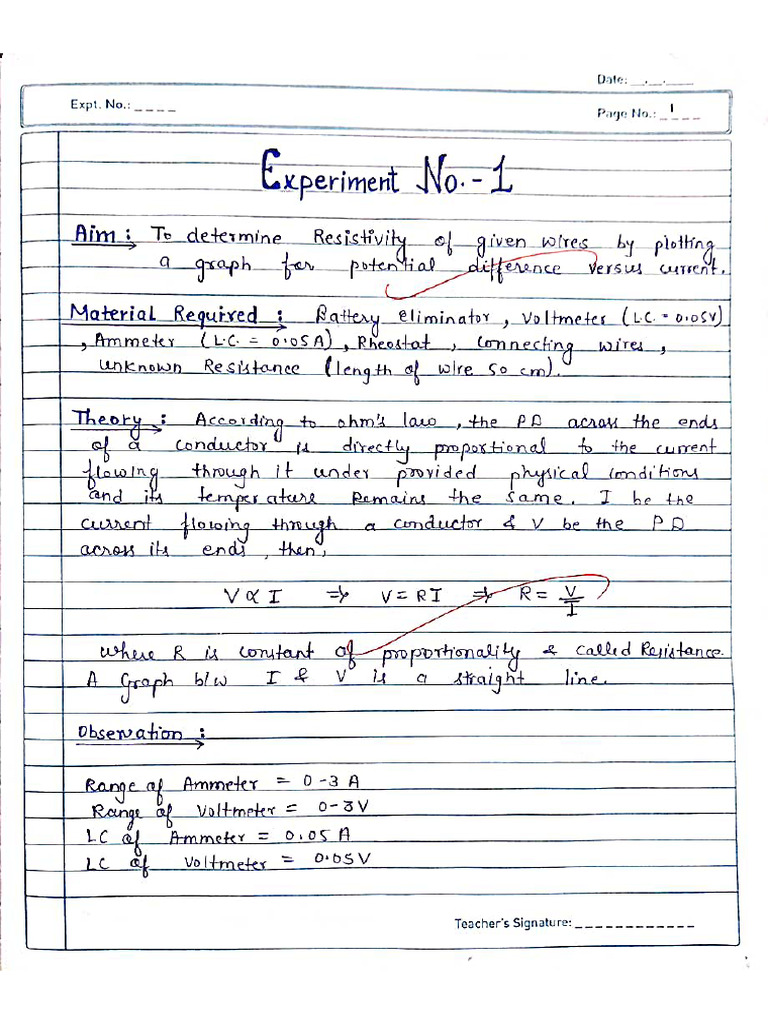 Date: _._.___
Expt. No.: ____
Page No.: 1
Experiment No.-1
Aim: To determine Resistivity of given wires by plotting
a graph for potential difference versus current.
Material Required: Battery eliminator, Voltmeter (L.C.=0.05V)
, Ammeter (L.C. = 0.05A), Rheostat, connecting wires,
unknown Resistance (length of wire 50 cm).
Theory: According to ohm's law, the PD across the ends
of a conductor is directly proportional to the current
flowing through it under provided physical conditions
and its temperature remains the same. I be the
current flowing through a conductor & V be the PD
across its ends, then,
V ∝ I ⇒ V = RI ⇒ R = V/I
where R is constant of proportionality & called Resistance.
A Graph b/w I & V is a straight line.
Observation:
Range of Ammeter = 0-3 A
Range of Voltmeter = 0-3V
LC of Ammeter = 0.05 A
LC of Voltmeter = 0.05V
Teacher's Signature: ____________